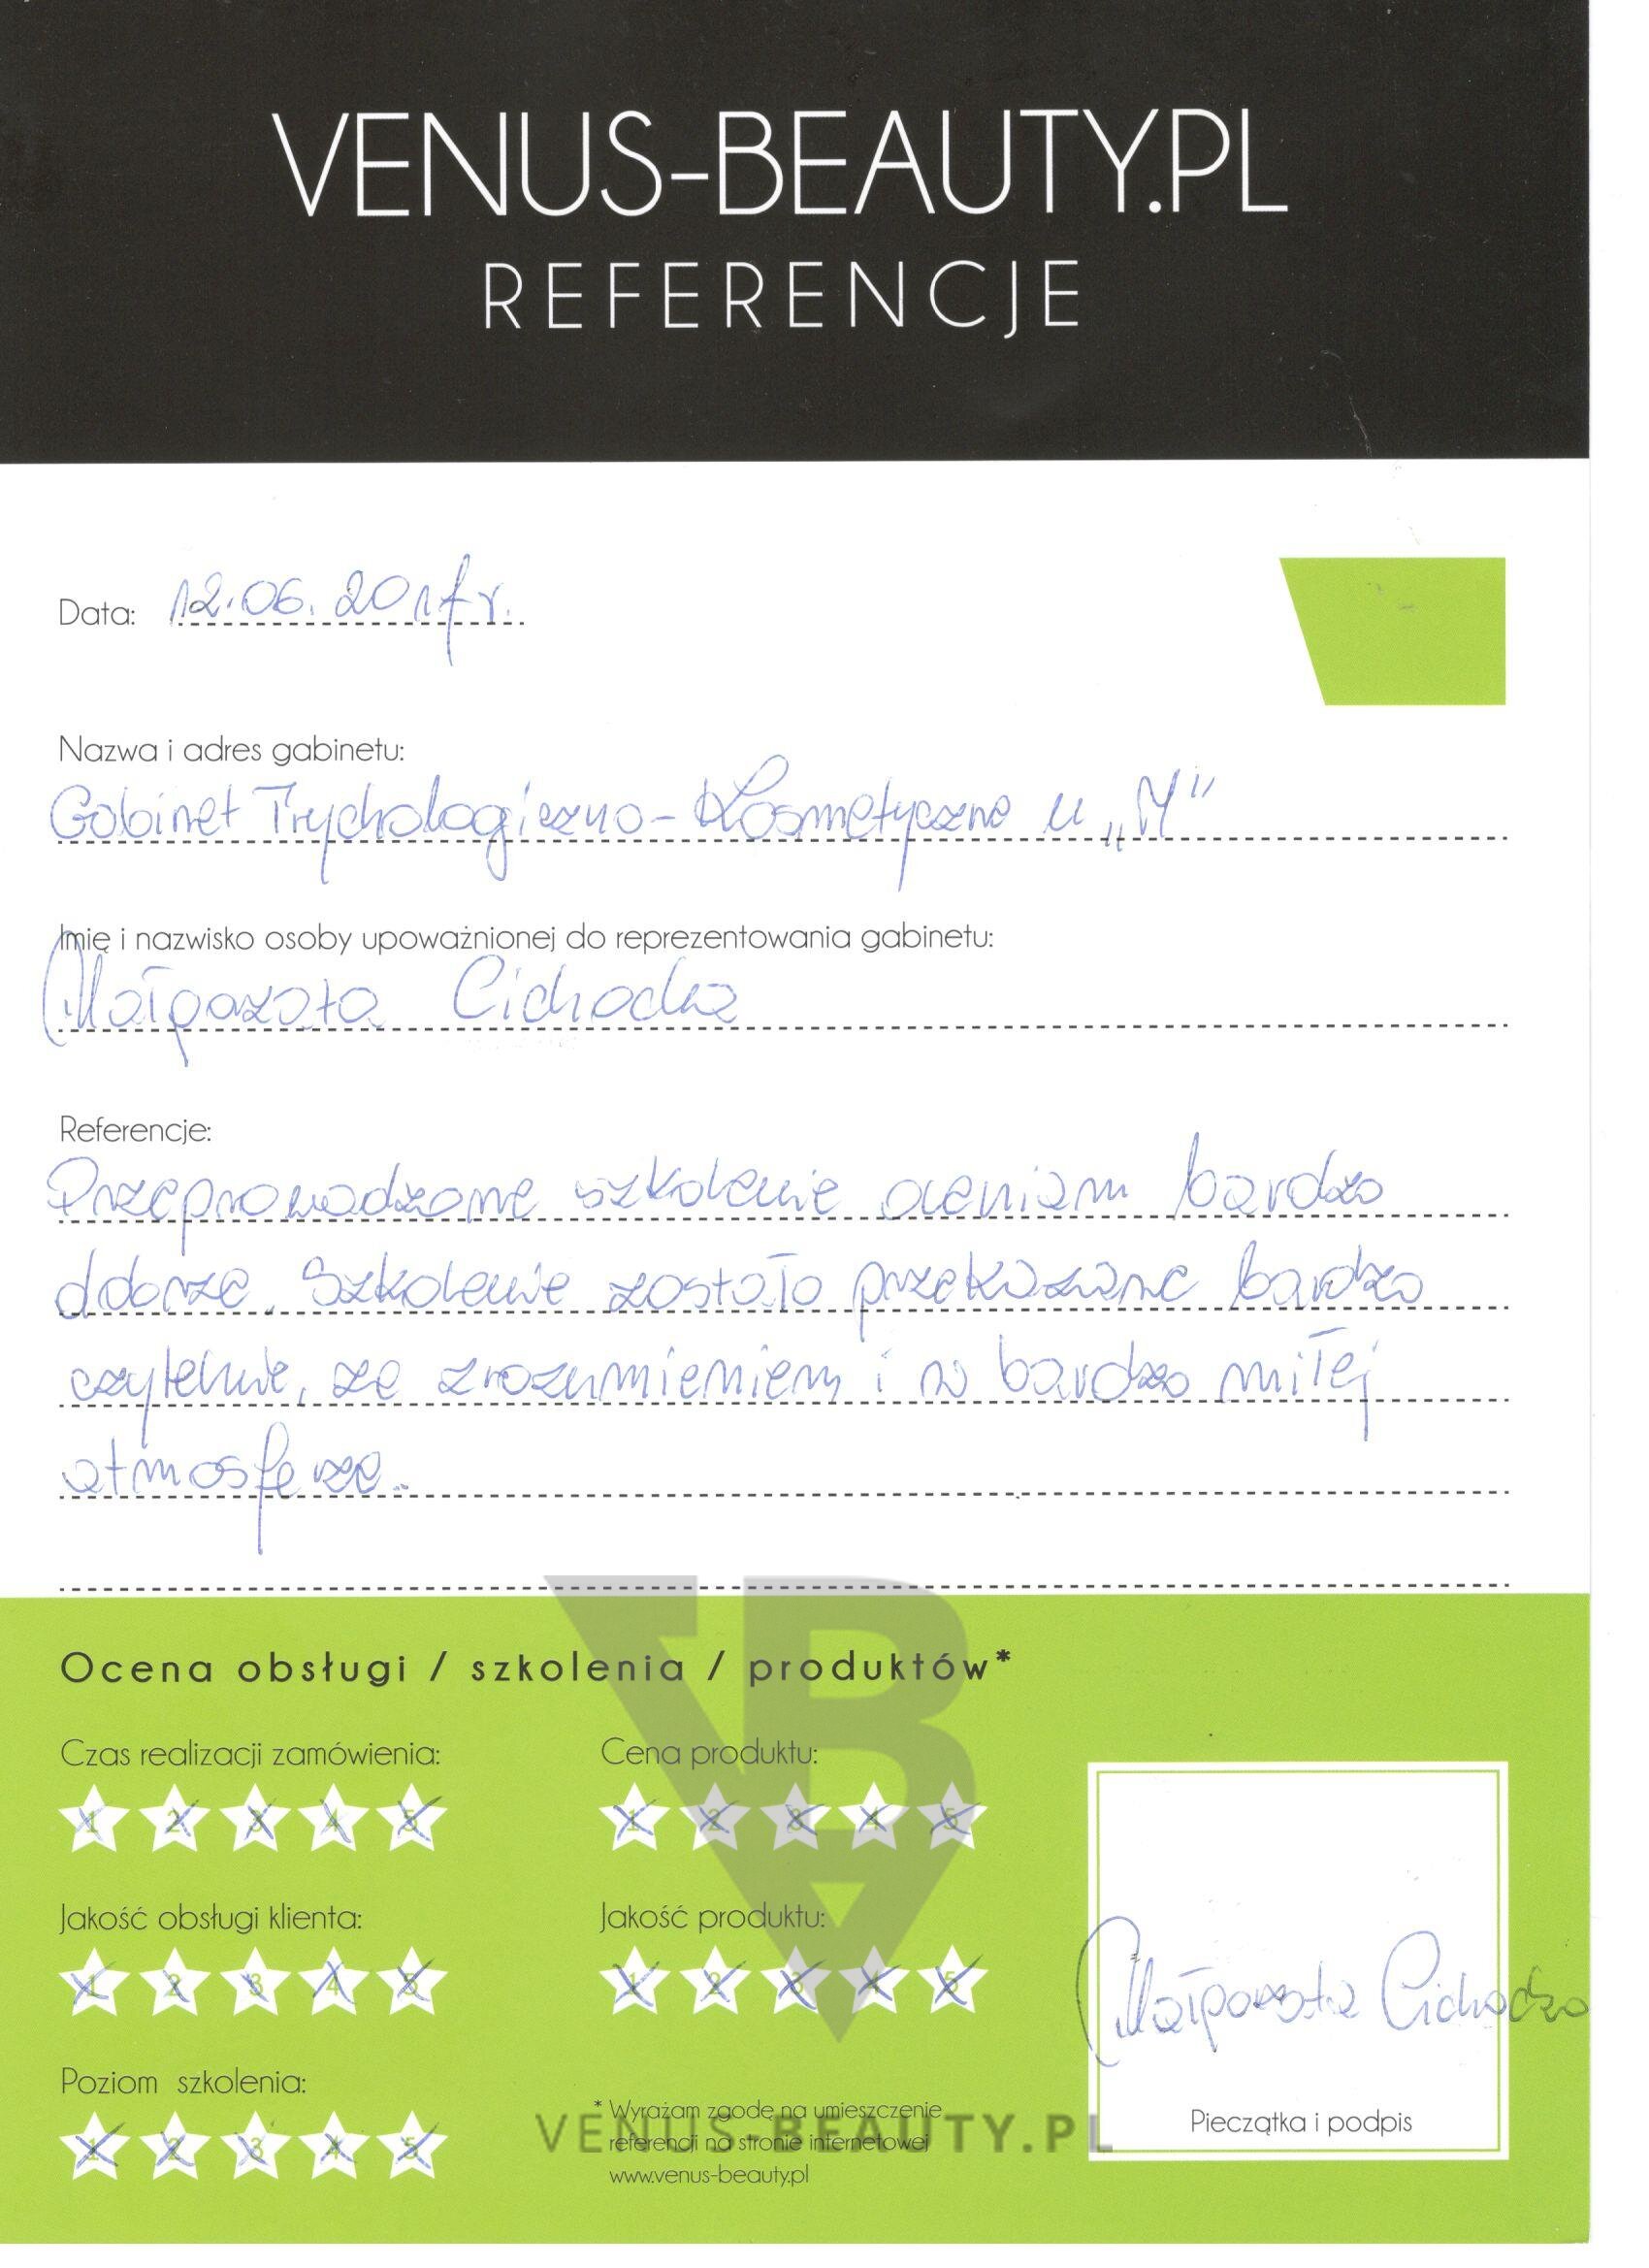 VENUS-BEAUTY.PL
REFERENCJE
Data: 12.06.2017 r.
Nazwa i adres gabinetu:
Gabinet Trychologiczno-Kosmetyczne u „M"
Imię i nazwisko osoby upoważnionej do reprezentowania gabinetu:
Małgorzata Cichocka
Referencje:
Przeprowadzone szkolenie oceniam bardzo
dobrze. Szkolenie zostało przekazane bardzo
czytelnie, ze zrozumieniem i w bardzo miłej
atmosferze.
Ocena obsługi / szkolenia / produktów*
Czas realizacji zamówienia:
1 2 3 4 5
Cena produktu:
1 2 3 4 5
Jakość obsługi klienta:
1 2 3 4 5
Jakość produktu:
1 2 3 4 5
Poziom szkolenia:
1 2 3 4 5
* Wyrażam zgodę na umieszczenie
referencji na stronie internetowej
www.venus-beauty.pl
Małgorzata Cichocka
Pieczątka i podpis
VBA
VENUS-BEAUTY.PL